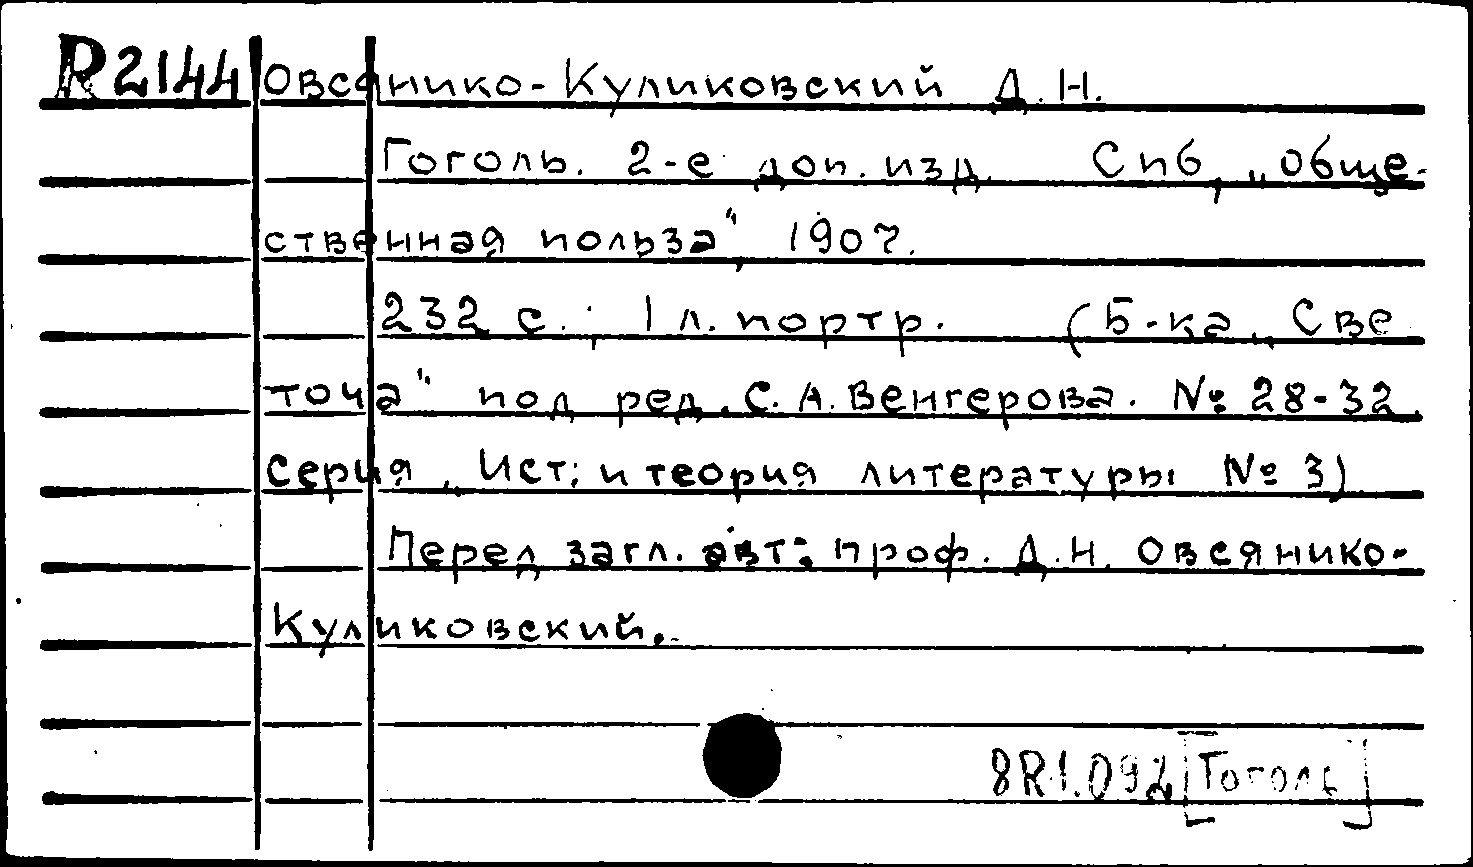 R2144 Овсянико-Куликовский Д.Н.
Гоголь. 2-е доп. изд. Спб, „Обще-
ственная польза", 1907.
232 с.; 1 л. портр. (Б-ка „Све
точа" под ред. С.А. Венгерова. № 28-32.
Серия „Ист. и теория литературы № 3)
Перед загл. авт.: проф. Д.Н. Овсянико-
Куликовский.
8R1.092 [Гоголь]